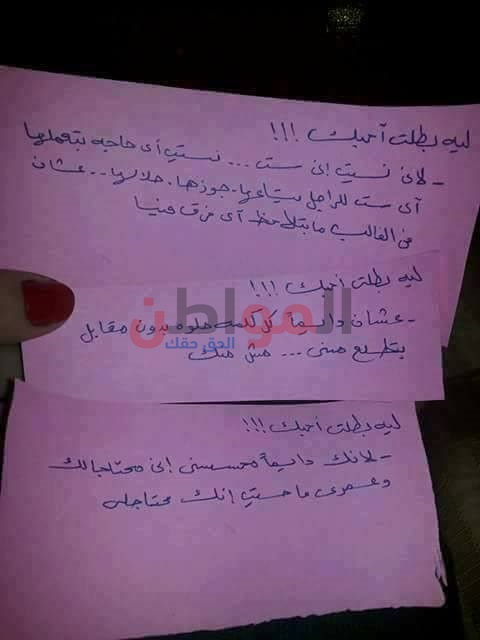 ليه بطلت أحبك !!!
- لانى نسيت إنى ست ... نسيت أى حاجه بتعملها
أى ست للراجل بتاعها. جوزها. حلالها .. عشان
فى الغالب ما بتلاحظ أى فرق فينيا
ليه بطلت أحبك !!!
- عشان دايماً كل كلمه حلوه بدون مقابل
بتطلع منى ... مش منك
المواطن
الحق حقك
ليه بطلت أحبك !!!
- لانك دايماً محسسنى إنى محتاجالك
وعمرى ما حسيت إنك محتاجلى